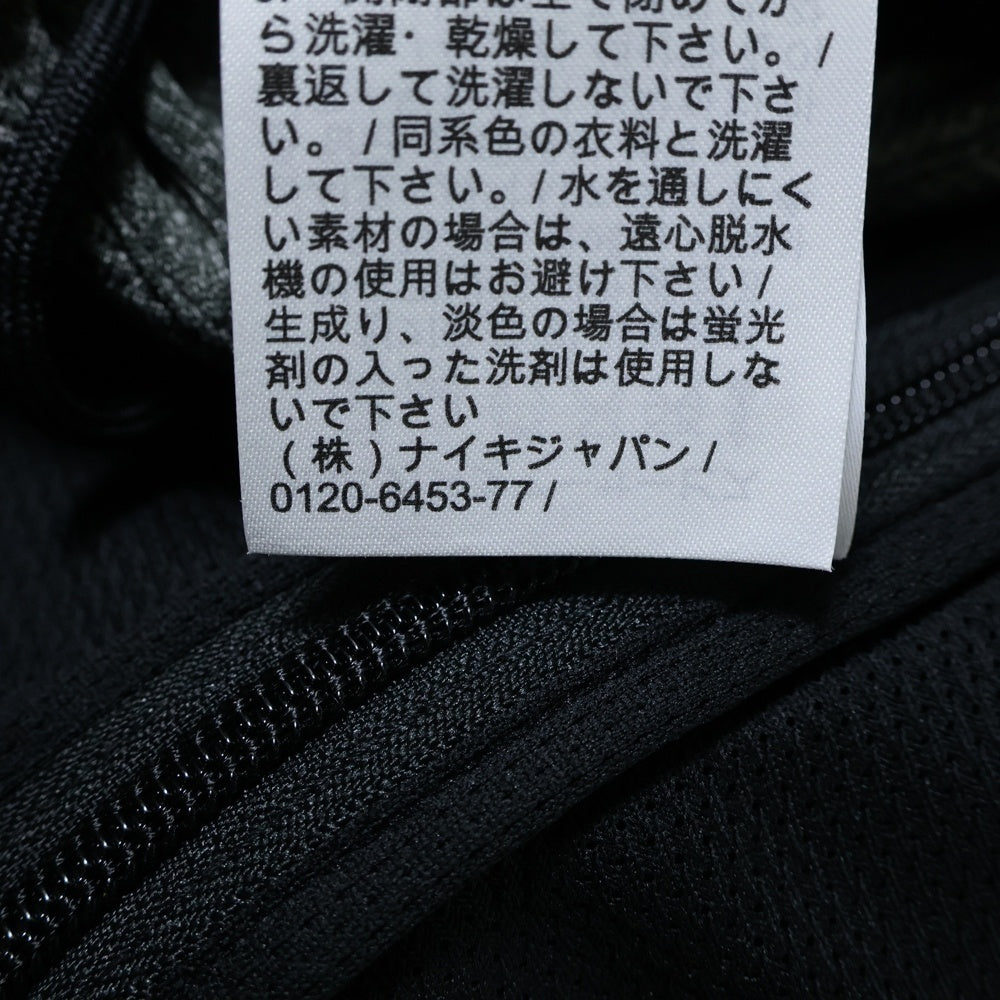 開閉部は全て閉めてか
ら洗濯・乾燥して下さい。/
裏返して洗濯しないで下さ
い。/同系色の衣料と洗濯
して下さい。/水を通しにく
い素材の場合は、遠心脱水
機の使用はお避け下さい/
生成り、淡色の場合は蛍光
剤の入った洗剤は使用しな
いで下さい
(株)ナイキジャパン/
0120-6453-77/